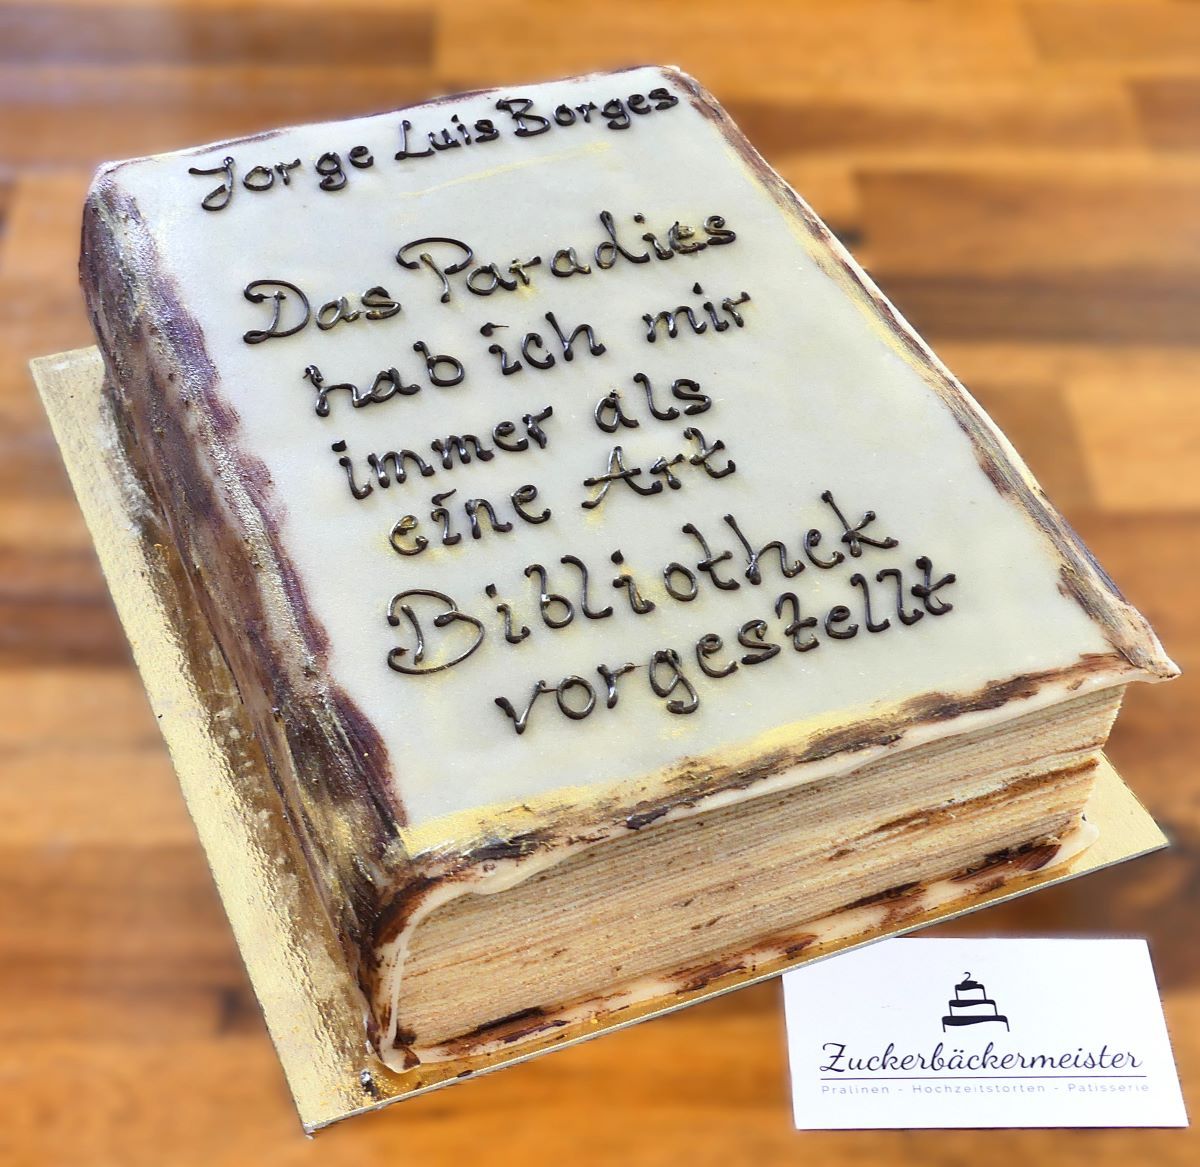 Jorge Luis Borges
Das Paradies
hab ich mir
immer als
eine Art
Bibliothek
vorgestellt
Zuckerbäckermeister
Pralinen - Hochzeitstorten - Patisserie